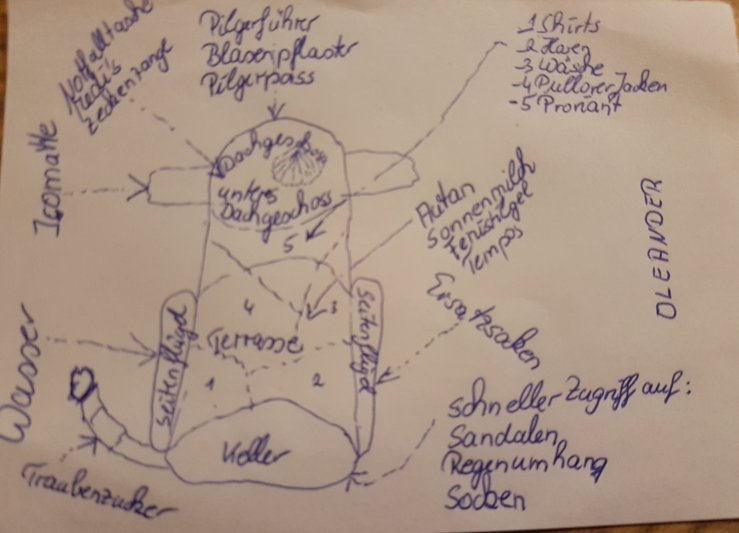 Notfalltasche
Medi's
Zeckenzange
Pilgerführer
Blasenpflaster
Pilgerpass
1 Shirts
2 Hosen
-3 Wäsche
-4 Pullover Jacken
-5 Proviant
Isomatte
Dachgesch
unteres
Dachgeschoss
5
Autan
Sonnenmilch
Fenistilgel
Tempos
OLEANDER
4
3
Terrasse
1
2
Seitenflügel
Seitenflügel
Ersatzsocken
Wasser
Keller
Traubenzucker
schneller Zugriff auf:
Sandalen
Regenumhang
Socken